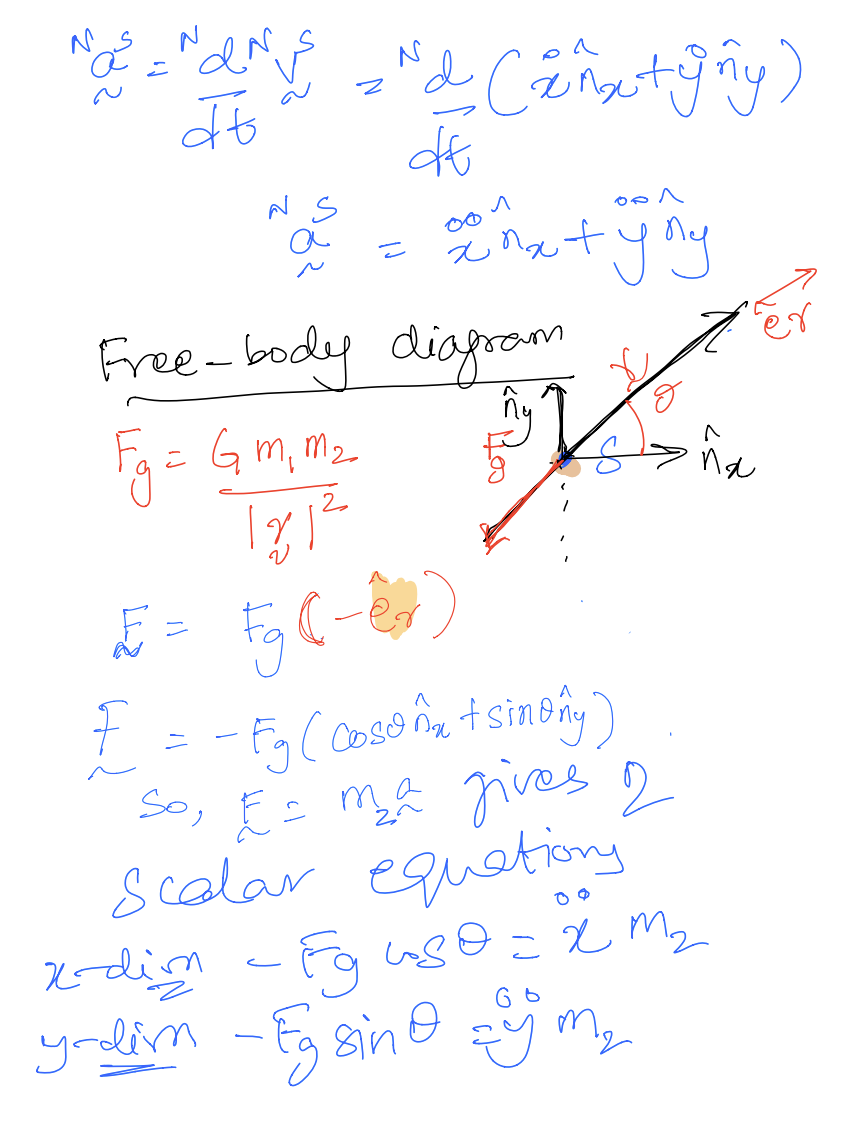 ᴺa̰ˢ = ᴺd/dt ᴺV̰ˢ = ᴺd/dt (ẋ n̂x + ẏ n̂y)
ᴺa̰ˢ = ẍ n̂x + ÿ n̂y
êr
Free-body diagram
r θ
n̂y
Fg = G m₁ m₂ / |r̰|²
Fg S n̂x
F̰ = Fg (-êr)
F̰ = -Fg (cosθ n̂x + sinθ n̂y)
So, F̰ = m₂a̰ gives 2
scalar equations
x-dirn - Fg cosθ = ẍ m₂
y-dirn - Fg sinθ = ÿ m₂